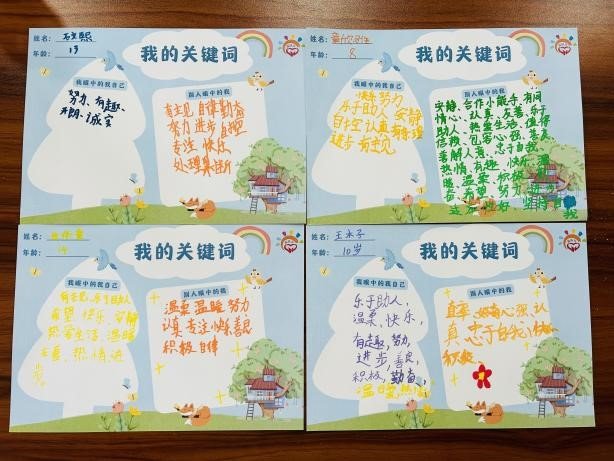 姓名：
年龄：13
我的关键词
我眼中的我自己
努力、有趣、
开朗、诚实
别人眼中的我
有主见 自律 勤奋
努力 进步 自观
专注 快乐
处理果断
姓名：
年龄：8
我的关键词
我眼中的我自己
快乐 努力
乐于助人 安静
进步 有主见
别人眼中的我
安静、合作小能手、有同
情心、认真、友善、乐于
助人、热爱生活、值得
信赖、包容心强、善良
善解人意、忠于自我
热情、有趣、快乐、温
暖、温柔、积极、
希望、努力
姓名：
年龄：14
我的关键词
我眼中的我自己
有主见、乐于助人
希望 快乐、安静
热爱生活、温暖
友善、热情、进
步
别人眼中的我
温柔 温暖 努力
认真 专注 快乐 善良
积极 自律
姓名：王禾子
年龄：10岁
我的关键词
我眼中的我自己
乐于助人，
温柔，快乐，
有趣，努力，
进步，善良，
积极，勤奋，
温暖，热情
别人眼中的我
直率、好奇心强、认
真、忠于自我、快乐
积极、